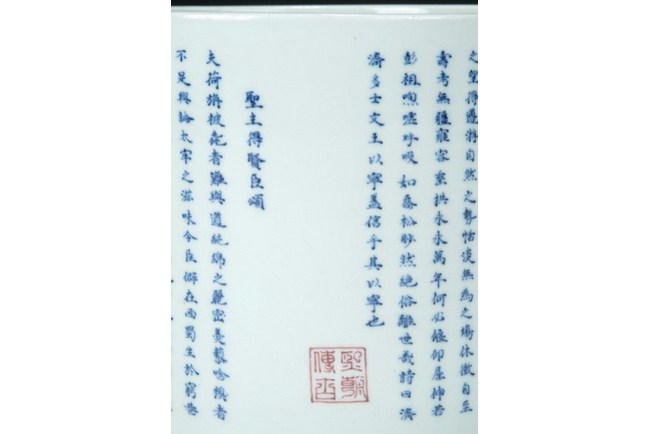 之望得遵游自然之勢恬淡無為之場休徵自至
壽考無疆雍容垂拱永永萬年何必偃仰屈伸若
彭祖呴噓呼吸如喬松眇然絕俗離世哉詩曰濟
濟多士文王以寧蓋信乎其以寧也
熙朝傳古
聖主得賢臣頌
夫荷旃被毳者難與道純綿之麗密羹藜唅糗者
不足與論太牢之滋味今臣僻在西蜀生於窮巷